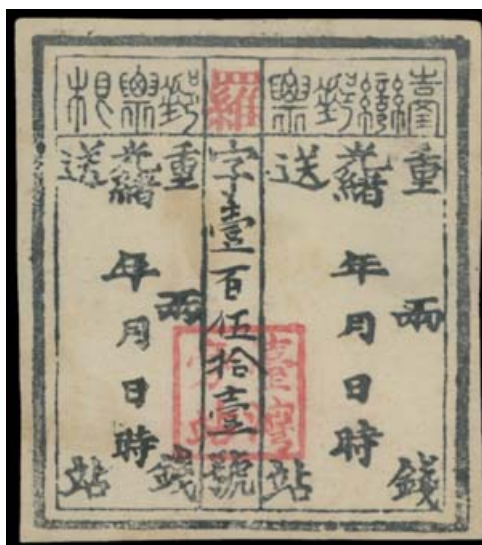 臺灣郵票
重 兩 錢
光緒 年 月 日 時
送 站
羅
字壹百伍拾壹號
郵票根
重 兩 錢
光緒 年 月 日 時
送 站
臺灣